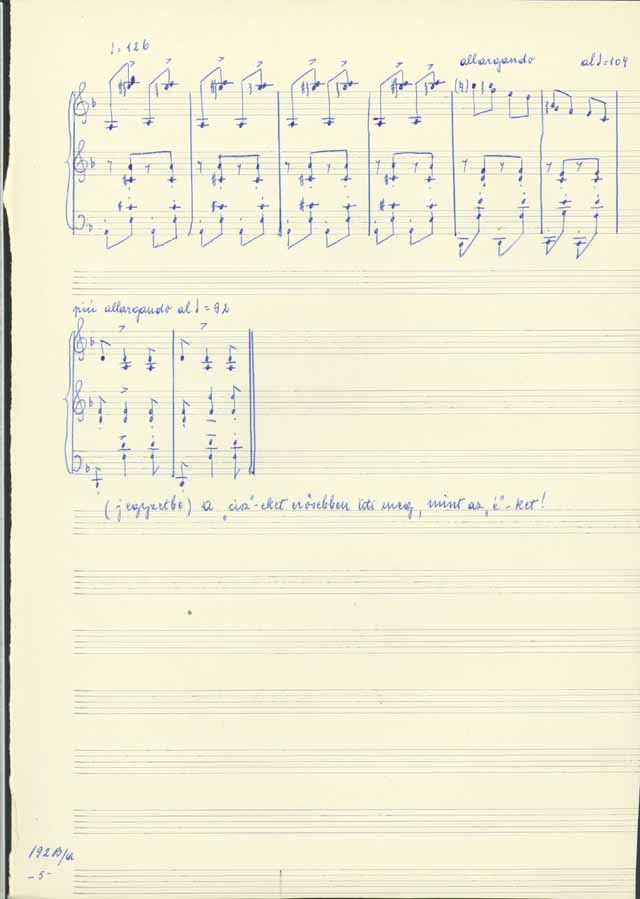 ♩=126
allargando al ♩=104
(4)
più allargando al ♩=92
(jegyzetbe) a "cisz"-eket erősebben üti meg, mint az "é"-ket!
192B/a
-5-